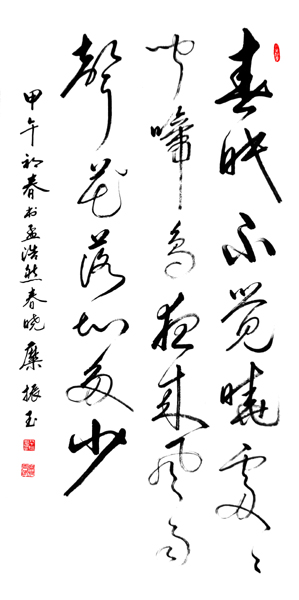 春眠不觉晓处〻
闻啼鸟夜来风雨
聲花落知多少
甲午初春书孟浩然春晓 糜振玉